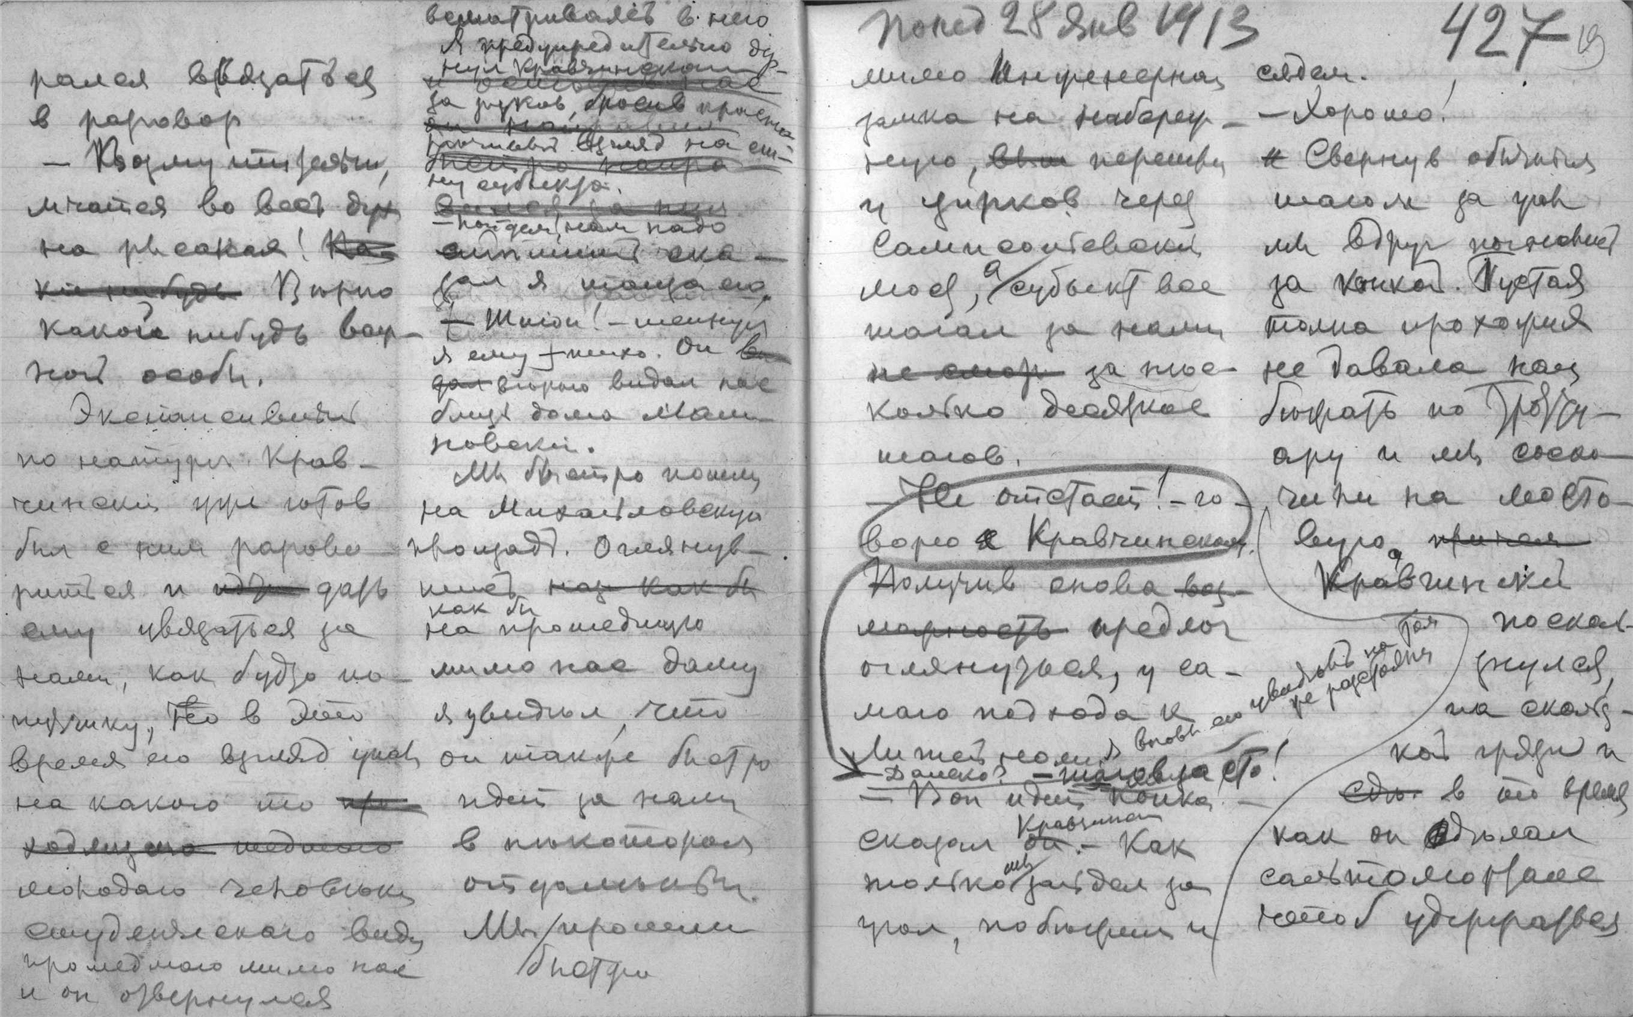 рался ввязаться
в разговор
— Возмутительно,
мчатся во весь дух
на рысаках! Ка-
кие нибудь Вѣрно
какой нибудь важ-
ной особы.
Экспансивный
по натурѣ Крав-
чинскій уже готов
был с ним разгово-
риться и дать
ему увязаться за
нами, как будто по-
путчику, Но в это
время его взгляд упал
на какого то про
ходящаго шедшаго
молодого человѣка
студенческаго вида
прошедшаго мимо нас
и он отвернулся
всматриваясь в него
Я предупредительно дер-
нул Кравчинскаго
за рукав, бросив
взгляд на
субъекта.
— Пойдем, нам надо
спѣшить ска-
зал я таща его.
— Шпион! — шепнул
я ему тихо. Он
вѣрно видал нас
близ дома Мали-
новской.
Мы быстро пошли
на Михайловскую
площадь. Оглянув-
шись как бы
на прошедшую
мимо нас даму
я увидѣл, что
он также быстро
идет за нами
в нѣкотором
отдаленіи.
Мы прошли
быстро
Понед 28 Янв 1913
427
19
мимо Инженернаго
замка на набереж-
ную, перешли
у цирков через
Сампсоніевскій
мост, а субъект все
шагал за нами
за нѣс-
колько десятков
шагов.
— Не отстает! — го-
ворю я Кравчинскому.
Получив снова воз-
можность предлог
оглянуться, у са-
маго подхода к
Литейному я вновь его увидѣвъ на том
же разстояніи
— Далеко? — шагов за сто!
— Вон идет конка —
сказал он Кравчинскій. — Как
только мы зайдем за
угол, побѣжим и
сядем.
— Хорошо!
Свернув обычным
шагом за угол
мы вдруг
за конкой. Густая
толпа прохожих
не давала нам
бѣжать по троту-
ару и мы соско-
чили на мосто-
вую, а
Кравчинскій
поскольз-
нулся,
на скольз-
кой грязи и
в то время
как он дѣлал
сальтомортале
чтоб удержаться